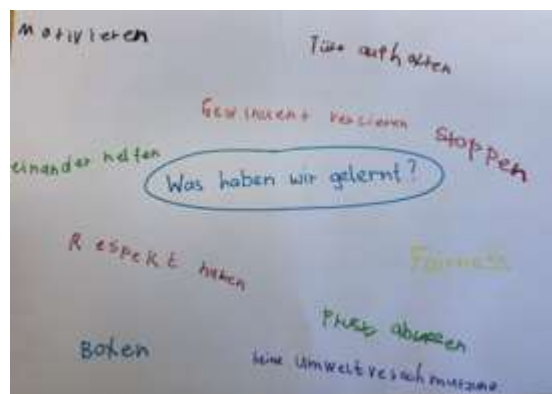 Motivieren
Türe aufhalten
Gewinnen + verlieren
Stoppen
einander helfen
Was haben wir gelernt?
Respekt haben
Fairness
Boxen
keine Umweltverschmutzung